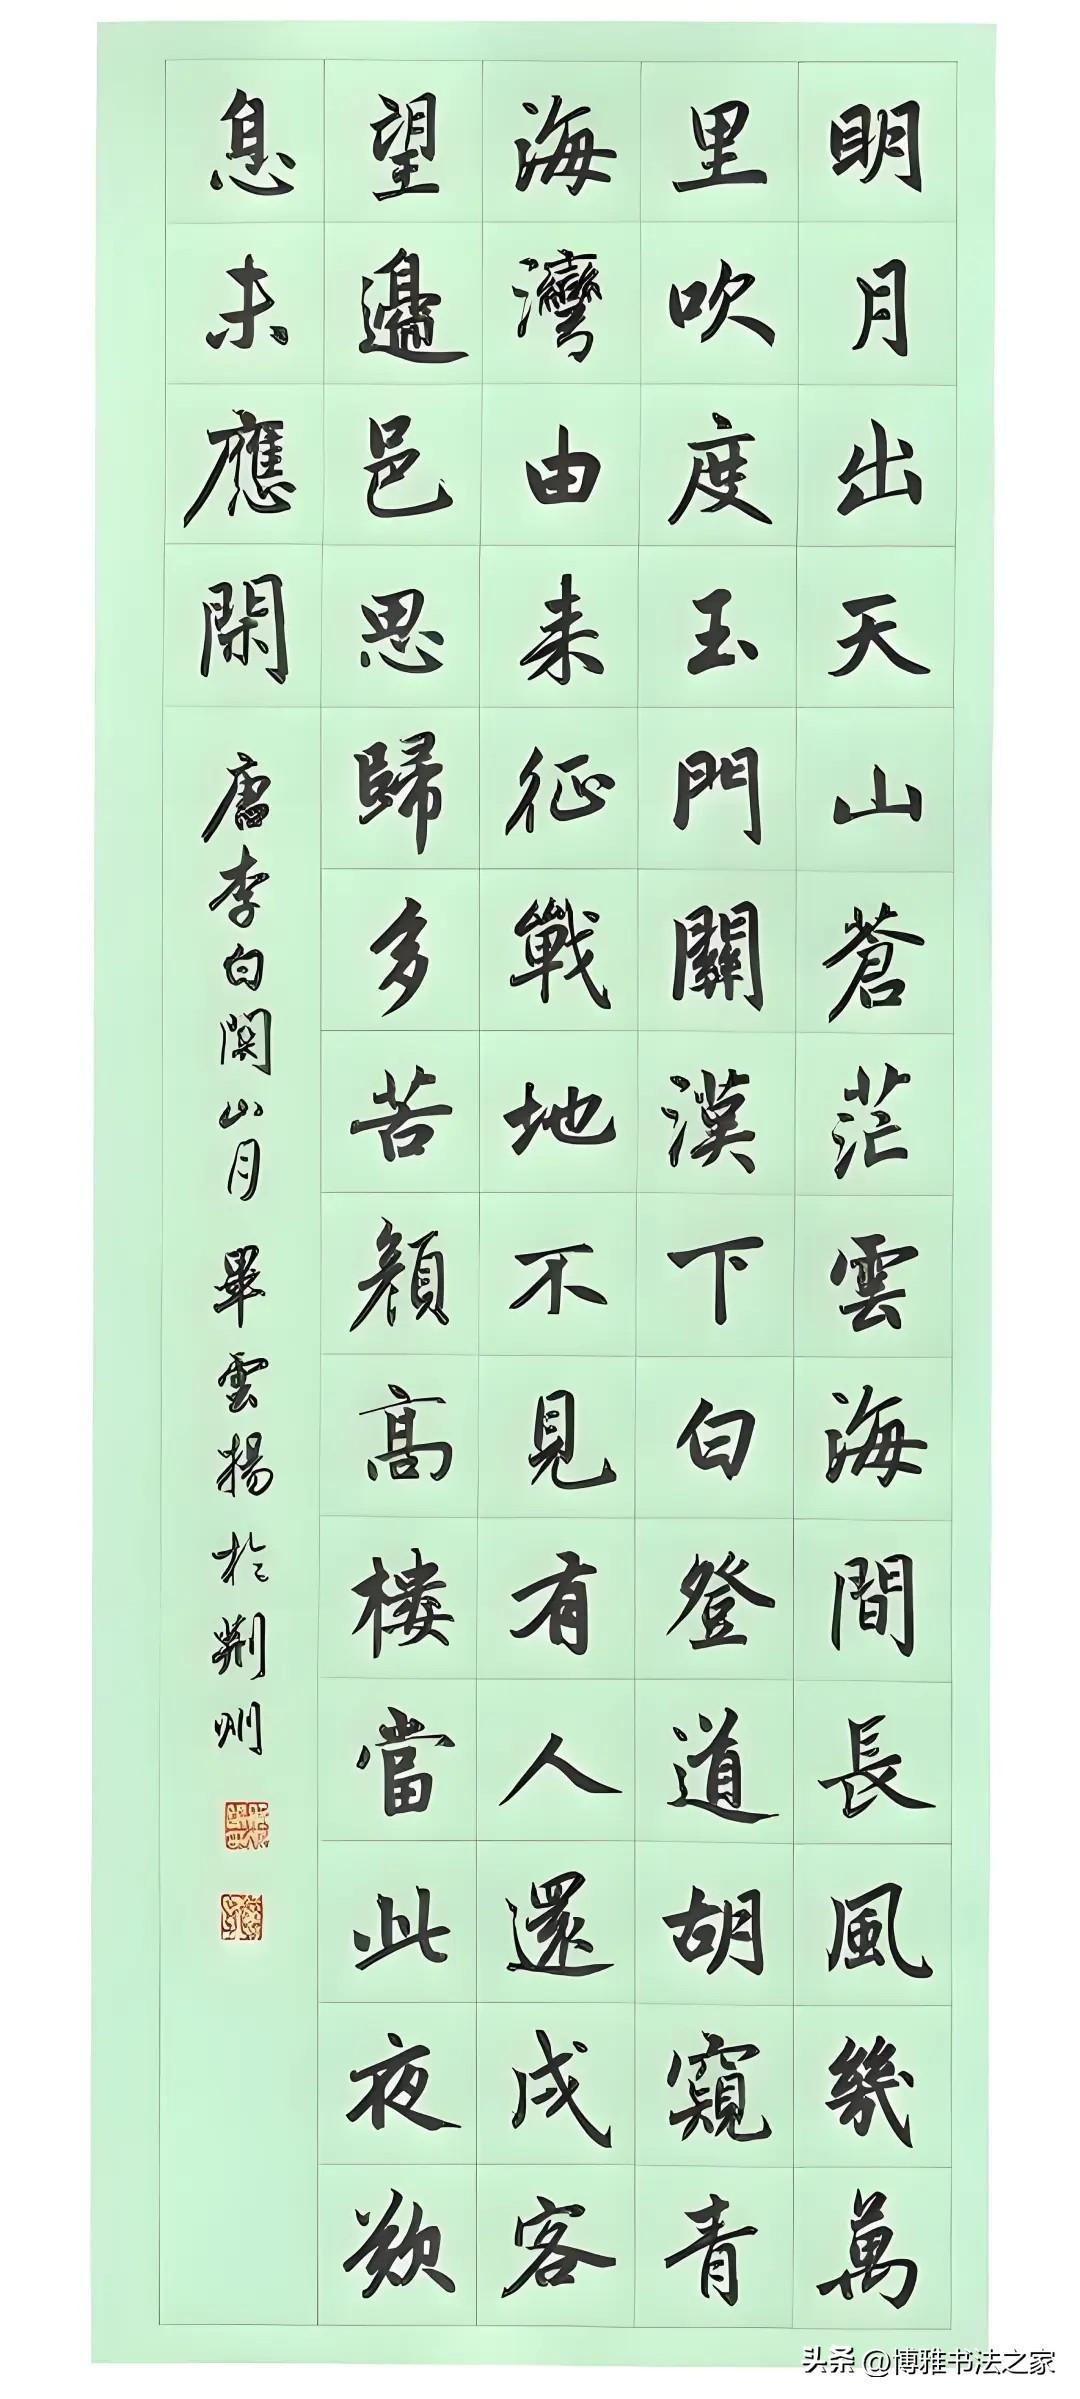 明月出天山蒼茫雲海間長風幾萬
里吹度玉門關漢下白登道胡窺青
海灣由来征戰地不見有人還戍客
望邊邑思歸多苦顏高樓當此夜歎
息未應閑
唐李白関山月 畢雲揚於荆州
头条 @博雅书法之家